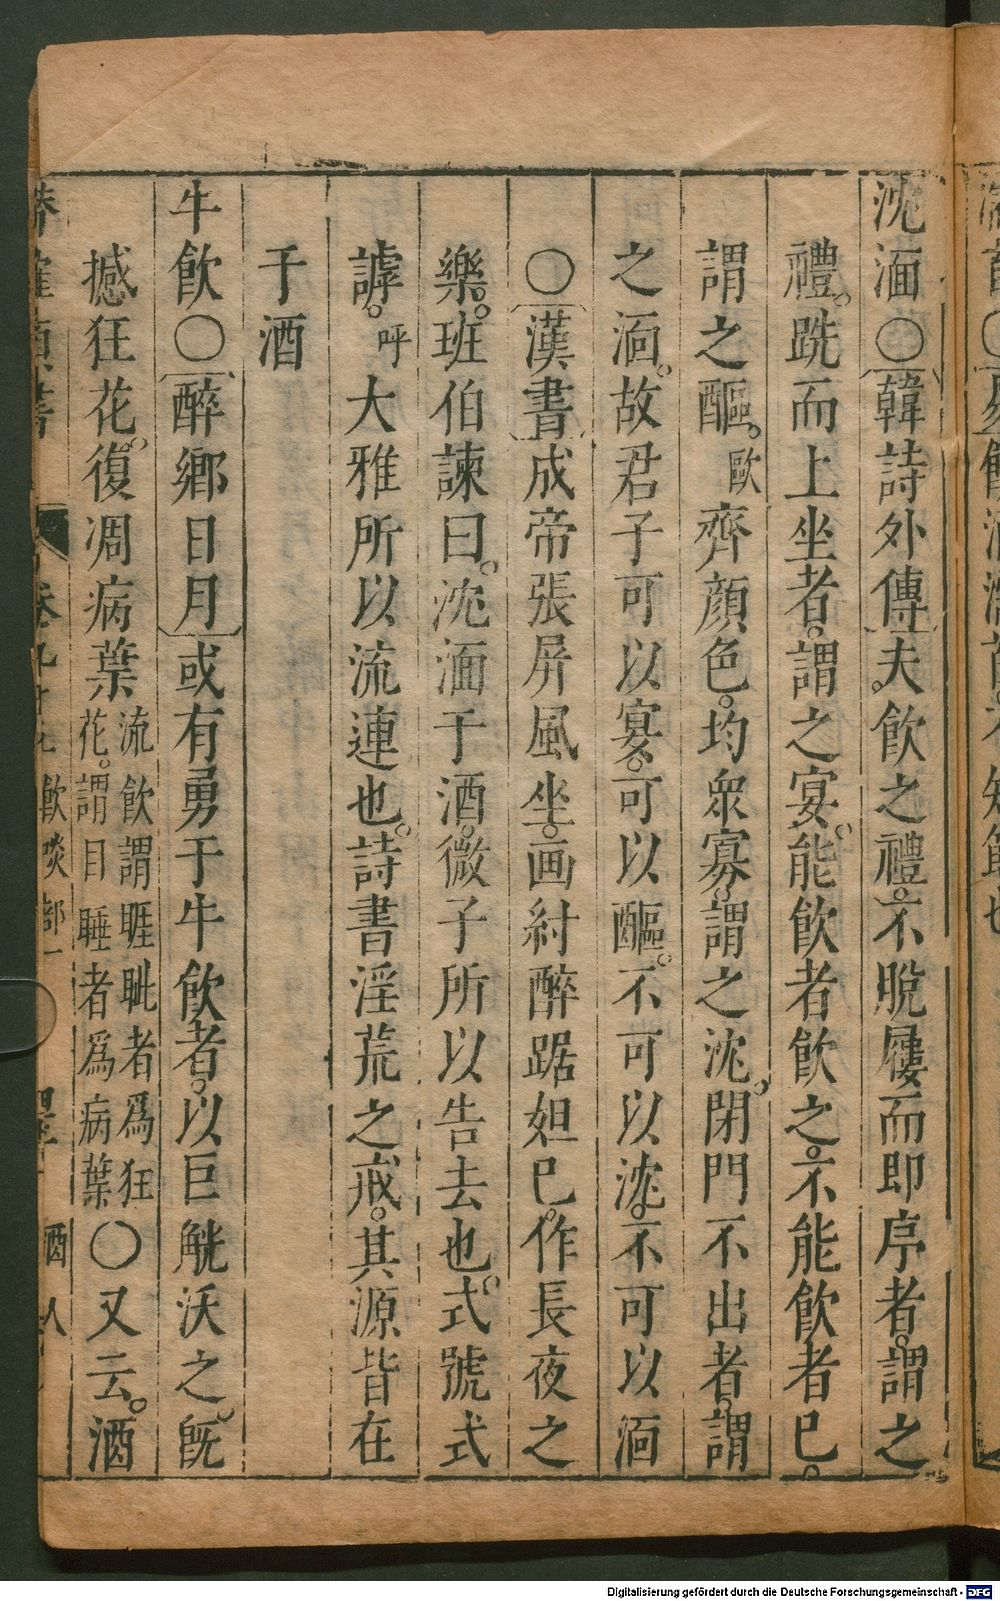 沈湎〇韓詩外傳夫飲之禮不脫屨而即序者謂之
禮跣而上坐者謂之宴能飲者飲之不能飲者已
謂之醧歐齊顏色均衆寡謂之沈閉門不出者謂
之湎故君子可以宴可以醧不可以沈不可以湎
〇漢書成帝張屏風坐画紂醉踞妲已作長夜之
樂班伯諫曰沈湎于酒微子所以告去也式號式
謼呼大雅所以流連也詩書淫荒之戒其源皆在
于酒
牛飲〇醉鄉日月或有勇于牛飲者以巨觥沃之旣
撼狂花復凋病葉流飲謂睚眦者為狂花謂目睡者為病葉〇又云酒
類書 卷九十九 飲啖部一 酒 八
Digitalisierung gefördert durch die Deutsche Forschungsgemeinschaft - DFG